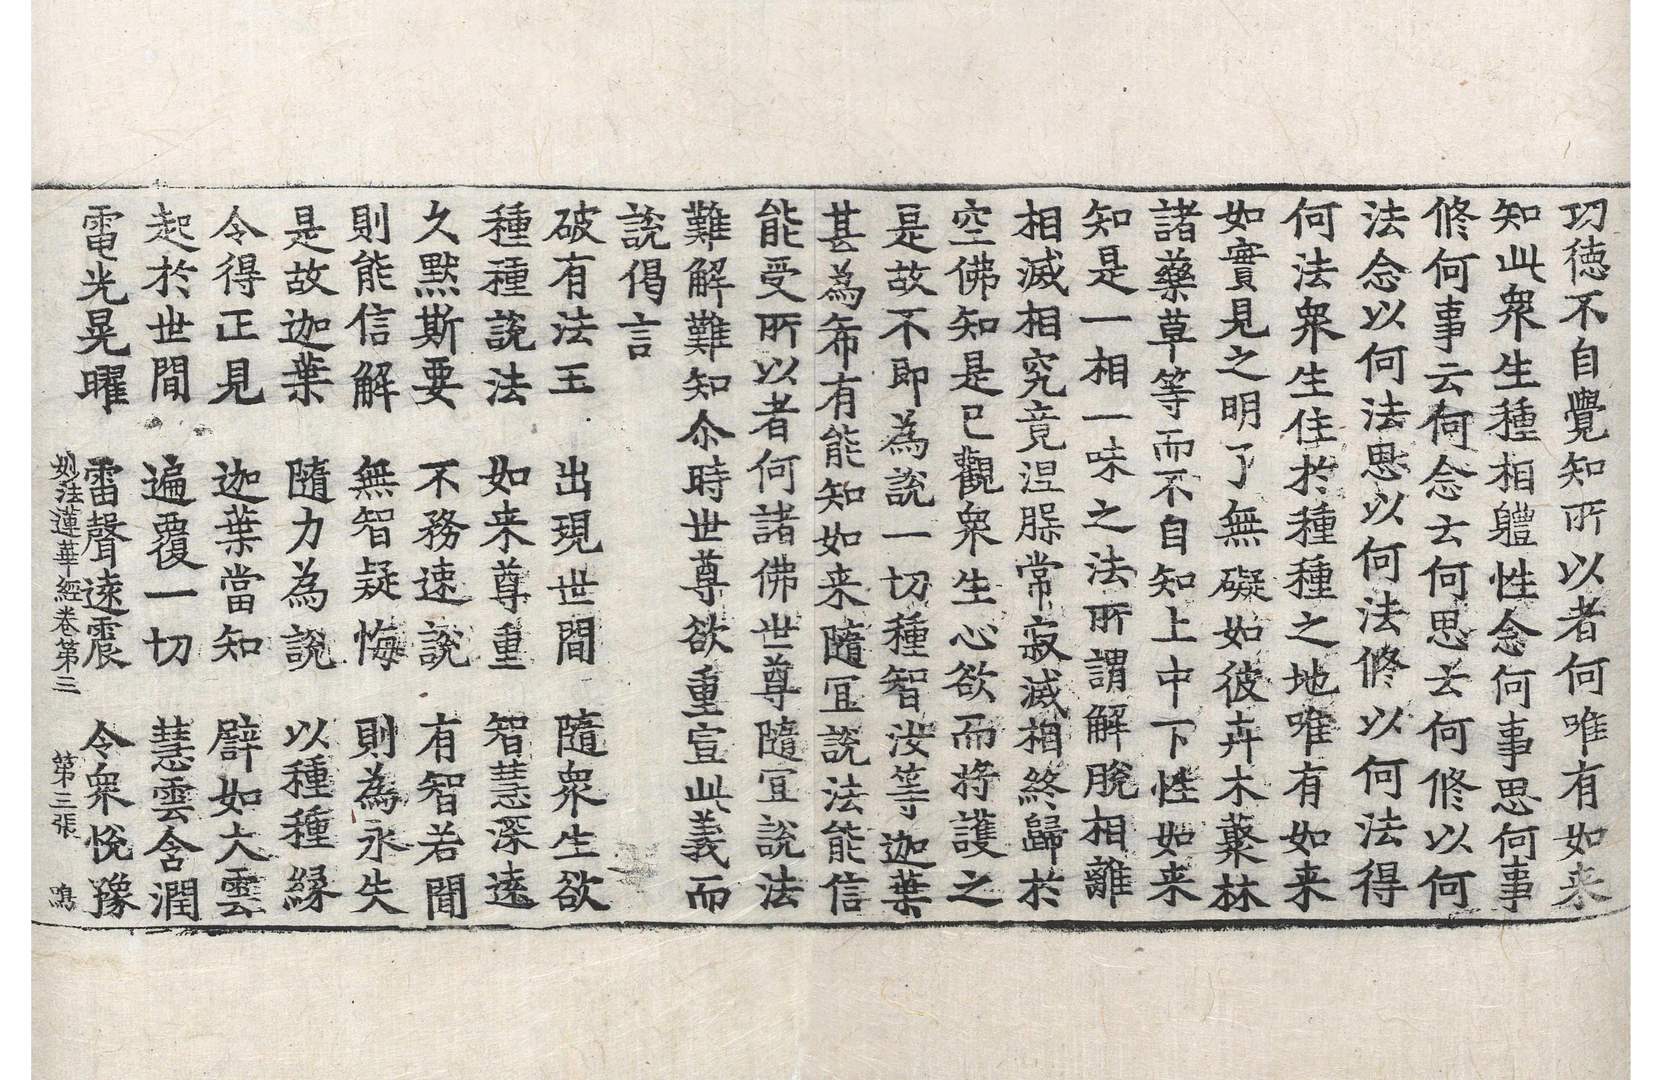 功德不自覺知所以者何唯有如来
知此衆生種相軆性念何事思何事
修何事云何念云何思云何修以何
法念以何法思以何法修以何法得
何法衆生住於種種之地唯有如来
如實見之明了無礙如彼卉木藂林
諸藥草等而不自知上中下性如来
知是一相一味之法所謂解脫相離
相滅相究竟涅槃常寂滅相終歸於
空佛知是已觀衆生心欲而将護之
是故不即為說一切種智汝等迦葉
甚為希有能知如来隨宜說法能信
能受所以者何諸佛世尊隨宜說法
難解難知尒時世尊欲重宣此義而
說偈言
破有法王　出現世間　隨衆生欲
種種說法　如来尊重　智慧深遠
久黙斯要　不務速說　有智若聞
則能信解　無智疑悔　則為永失
是故迦葉　隨力為說　以種種緣
令得正見　迦葉當知　譬如大雲
起於世間　遍覆一切　慧雲含潤
電光晃曜　雷聲遠震　令衆悅豫
妙法蓮華經卷第三　第三張　鳴